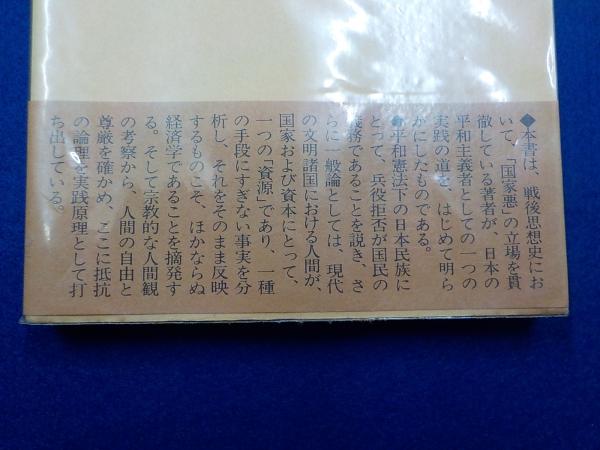 ◆本書は、戦後思想史にお
いて、「国家悪」の立場を貫
徹している著者が、日本の
平和主義者としての一つの
実践の道を、はじめて明ら
かにしたものである。
◆平和憲法下の日本民族に
とって、兵役拒否が国民の
義務であることを説き、さ
らに一般論としては、現代
の文明諸国における人間が、
国家および資本にとって、
一つの「資源」であり、一種
の手段にすぎない事実を分
析し、それをそのまま反映
するものこそ、ほかならぬ
経済学であることを摘発す
る。そして宗教的な人間観
の考察から、人間の自由と
尊厳を確かめ、ここに抵抗
の論理を実践原理として打
ち出している。